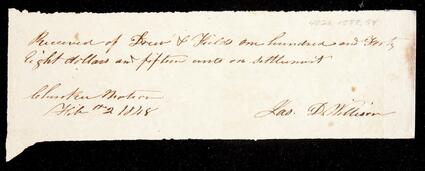 4026.1588.58
Received of Drew & Fields one hundred and Forty
Eight dollars and fifteen cents on settlement
Cherokee Nation
Feb 2 1848
Jas. D. Willison